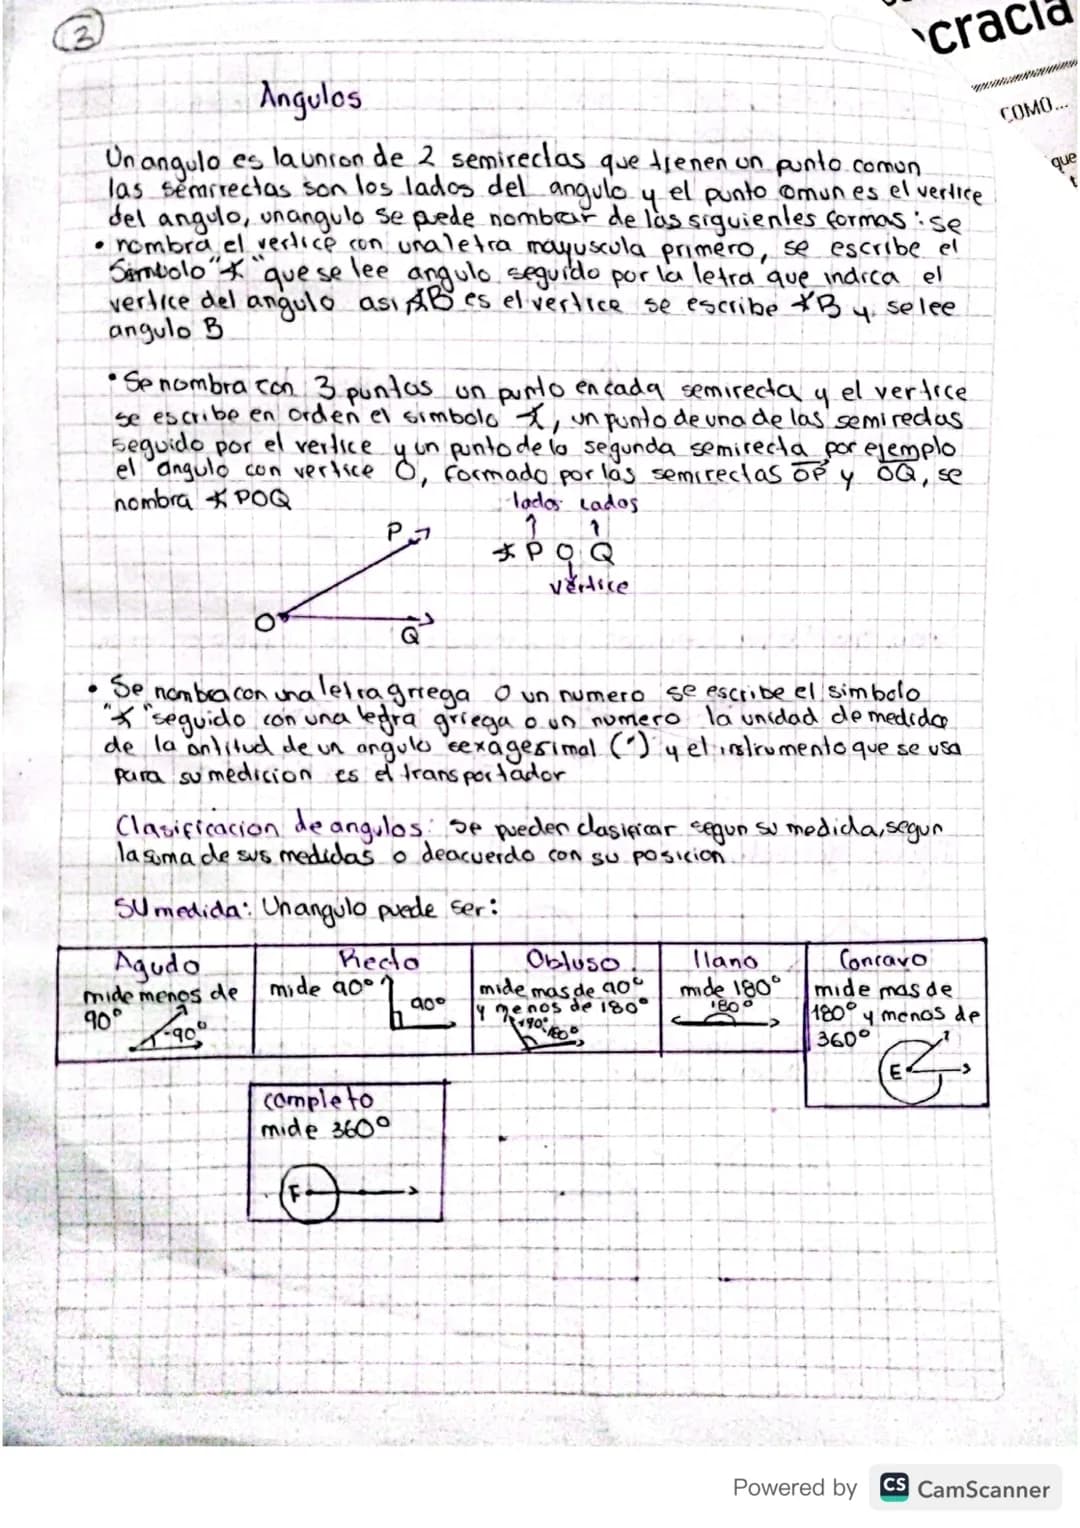 2
cracia
COMO...
que
Angulos
Un angulo es la union de 2 semirectas que tienen un punto comun
las semirrectas son los lados del angulo y el punto comun es el vertice
del angulo, un angulo se puede nombrar de las siguientes formas: se
• nombra el vertice con una letra mayuscula primero, se escribe el
Simbolo "∡" que se lee angulo seguido por la letra que indica el
vertice del angulo asi ∡B es el vertice se escribe ∡B y se lee
angulo B
• Se nombra con 3 puntas un punto en cada semirecta y el vertice
se escribe en orden el simbolo ∡, un punto de una de las semirectas
seguido por el vertice y un punto de la segunda semirecta por ejemplo
el angulo con vertice O, formado por las semirectas OP y OQ, se
nombra ∡ POQ
lados lados
P
∡ P O Q
vértice
O
Q
• Se nombra con una letra griega o un numero se escribe el simbolo
"∡" seguido con una letra griega o un numero la unidad de medida
de la antitud de un angulo sexagesimal (°) y el instrumento que se usa
para su medicion es el transportador
Clasificacion de angulos: se pueden clasificar segun su medida, segun
la suma de sus medidas o deacuerdo con su posicion
SU medida: Un angulo puede ser:
Agudo
mide menos de
90°
-90°
Recto
mide 90°
90°
Obtuso
mide mas de 90°
y menos de 180°
+90° 180°
llano
mide 180°
180°
Concavo
mide mas de
180° y menos de
360°
E
completo
mide 360°
F
Powered by CS CamScanner